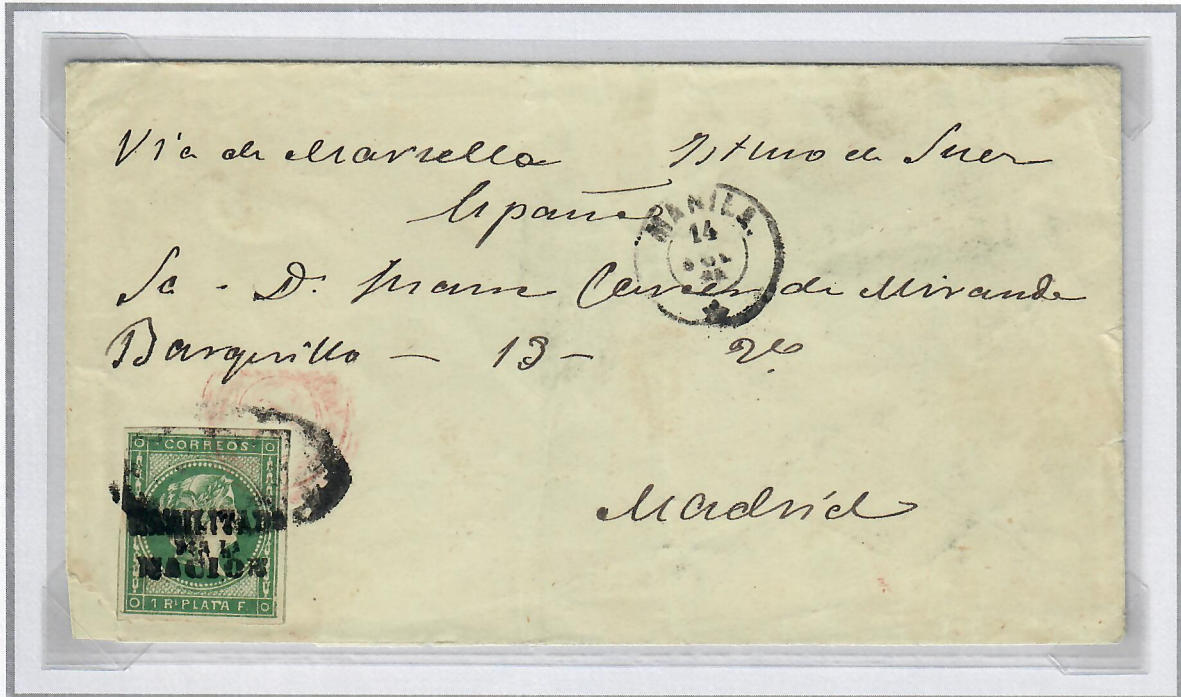 Via de Marsella Istmo de Suez
España
MANILA
14
Sr. D. de Miranda
Barquillo - 13 - 2º
CORREOS
HABILITADO
POR LA
NACION
1 Rl PLATA F.
Madrid